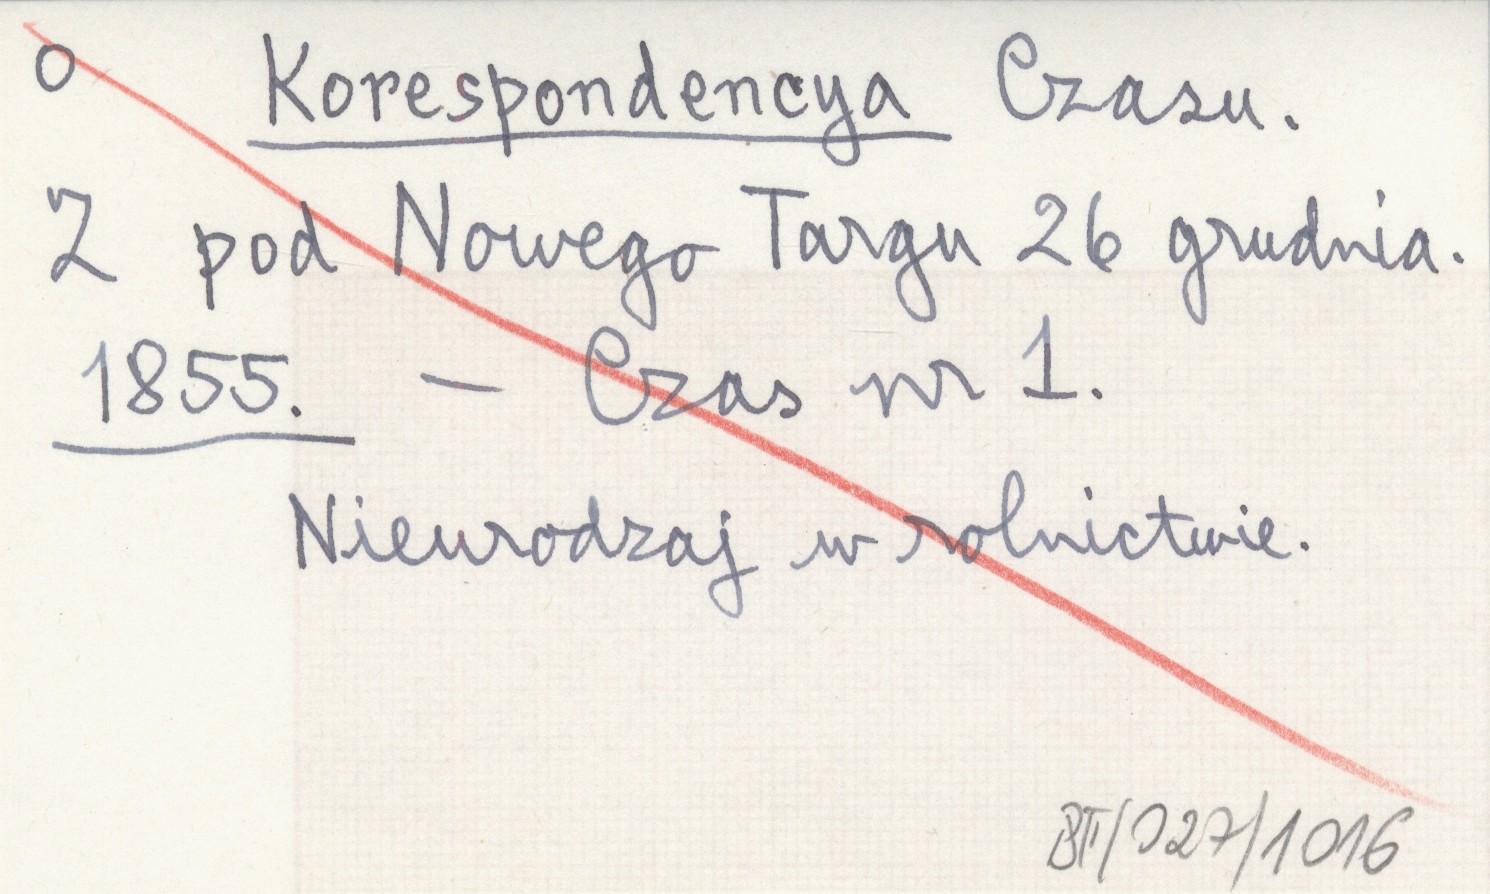 o Korespondencya Czasu.
Z pod Nowego Targu 26 grudnia.
1855. – Czas nr 1.
Nieurodzaj w rolnictwie.
BTT/027/1016